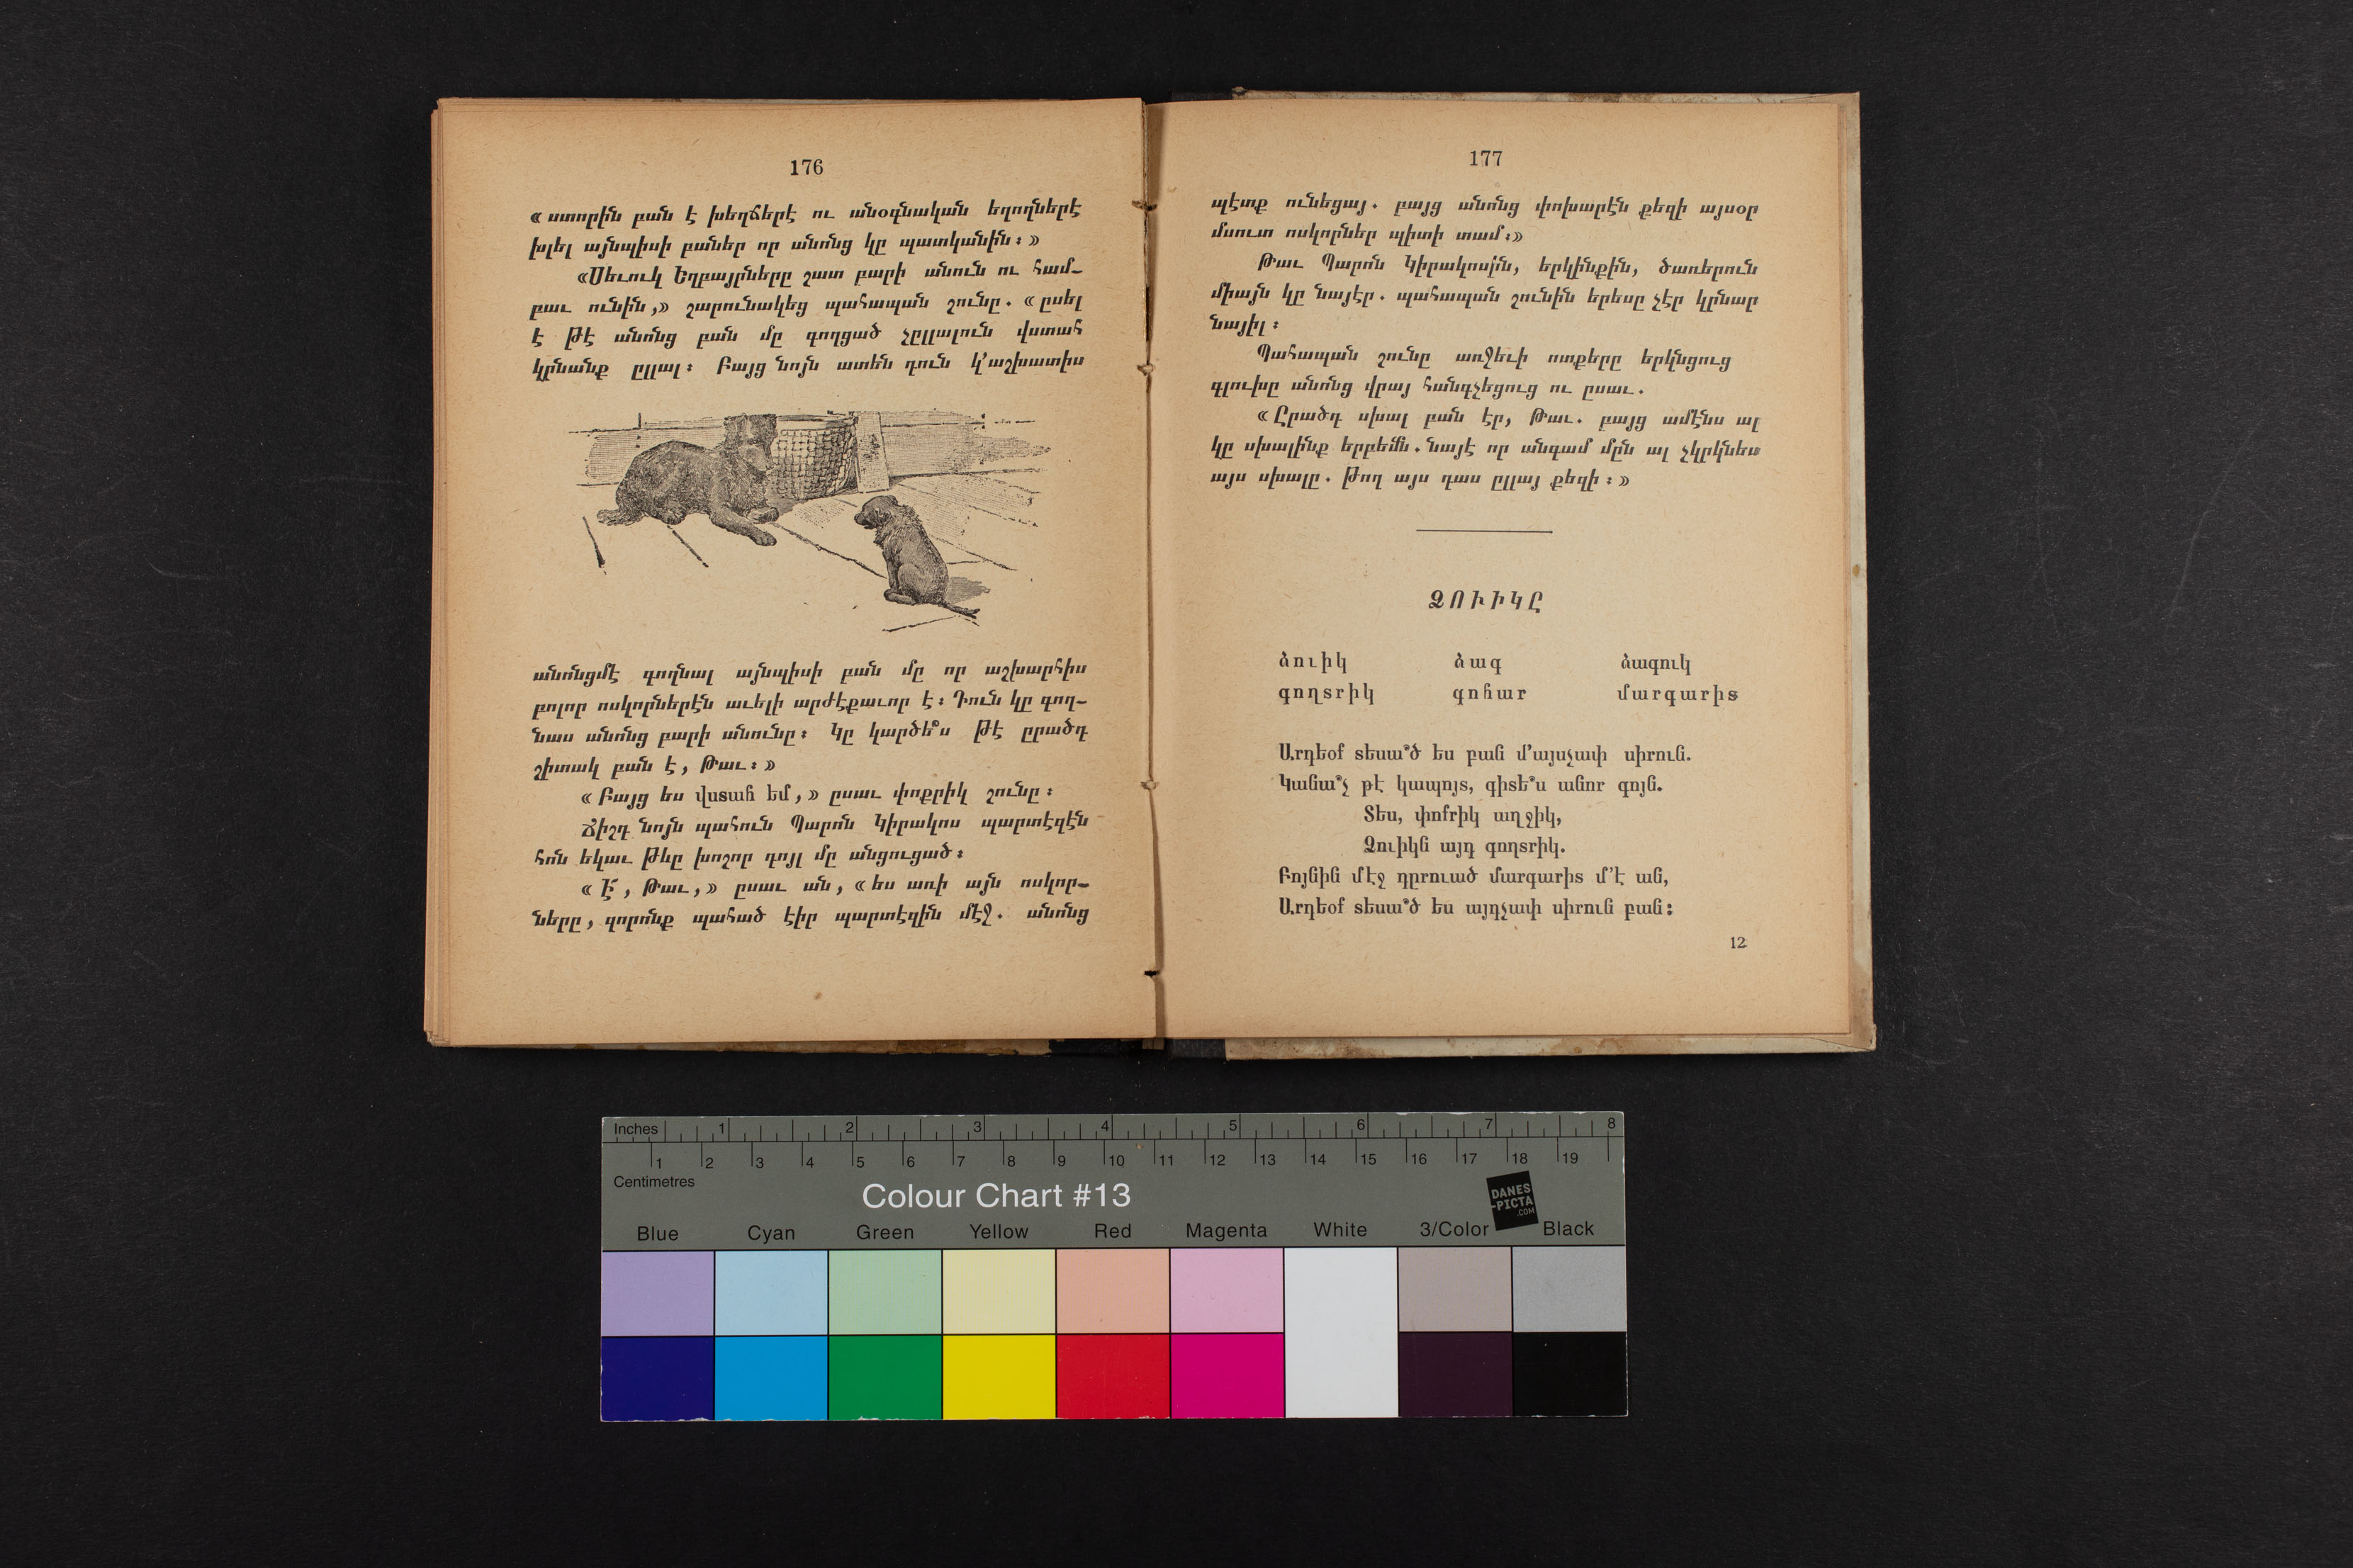 176
« ստորին բան է խեղճերէ ու անօգնական եղողներէ
խլել այնպիսի բաներ որ անոնց կը պատկանին։ »
«Սեւուկ Եղբայրները շատ բարի անուն ու համ-
բաւ ունին,» շարունակեց պահապան շունը. « ըսել
է թէ անոնց բան մը գողցած չըլլալուն վստահ
կրնանք ըլլալ։ Բայց նոյն ատեն դուն կ՚աշխատիս
անոնցմէ գողնալ այնպիսի բան մը որ աշխարհիս
բոլոր ոսկորներէն աւելի արժէքաւոր է։ Դուն կը գող-
նաս անոնց բարի անունը։ Կը կարծե՞ս թէ ըրածդ
շիտակ բան է, Թաւ։ »
« Բայց ես վստահ եմ, » ըսաւ փոքրիկ շունը։
Ճիշդ նոյն պահուն Պարոն Կիրակոս պարտէզէն
հոն եկաւ թևը խոշոր դոյլ մը անցուցած։
« Է՜, Թաւ, » ըսաւ ան, « ես առի այն ոսկոր-
ները, զորոնք պահած էիր պարտէզին մէջ. անոնց
177
պէտք ունեցայ. բայց անոնց փոխարէն քեզի այսօր
մսոտ ոսկորներ պիտի տամ։»
Թաւ Պարոն Կիրակոսին, երկինքին, ծառերուն
միայն կը նայէր. պահապան շունին երեսը չէր կրնար
նայիլ։
Պահապան շունը առջեւի ոտքերը երկնցուց
գլուխը անոնց վրայ հանգչեցուց ու ըսաւ.
« Ըրածդ սխալ բան էր, Թաւ. բայց ամէնս ալ
կը սխալինք երբեմն. նայէ որ անգամ մըն ալ չկրկնես
այս սխալը. Թող այս դաս ըլլայ քեզի։ »
ՁՈՒԻԿԸ
ձուիկ ձագ ձագուկ
գողտրիկ գոհար մարգարիտ
Արդեօք տեսա՞ծ ես բան մ՚այսչափ սիրուն.
Կանա՞չ թէ կապոյտ, գիտե՞ս անոր գոյն.
Տես, փոքրիկ աղջիկ,
Ձուիկն այդ գողտրիկ.
Բոյնին մէջ դըրուած մարգարիտ մ՚է ան,
Արդեօք տեսա՞ծ ես այդչափ սիրուն բան։
12
Inches 1 2 3 4 5 6 7 8
1 2 3 4 5 6 7 8 9 10 11 12 13 14 15 16 17 18 19
Centimetres
Colour Chart #13
DANES
-PICTA
.COM
Blue Cyan Green Yellow Red Magenta White 3/Color Black